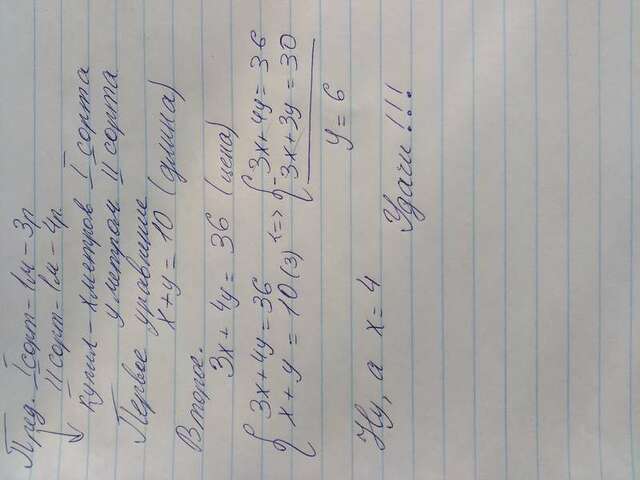 Прид. I сорт - 1м - 3р
II сорт - 1м - 4р.
купил - x метров I сорта
y метров II сорта
Первое уравнение
x + y = 10 (длина)
Второе.
3x + 4y = 36 (цена)
{ 3x + 4y = 36
x + y = 10 (3) <=> { 3x + 4y = 36
3x + 3y = 30
y = 6
Ну, а x = 4
Удачи!!!